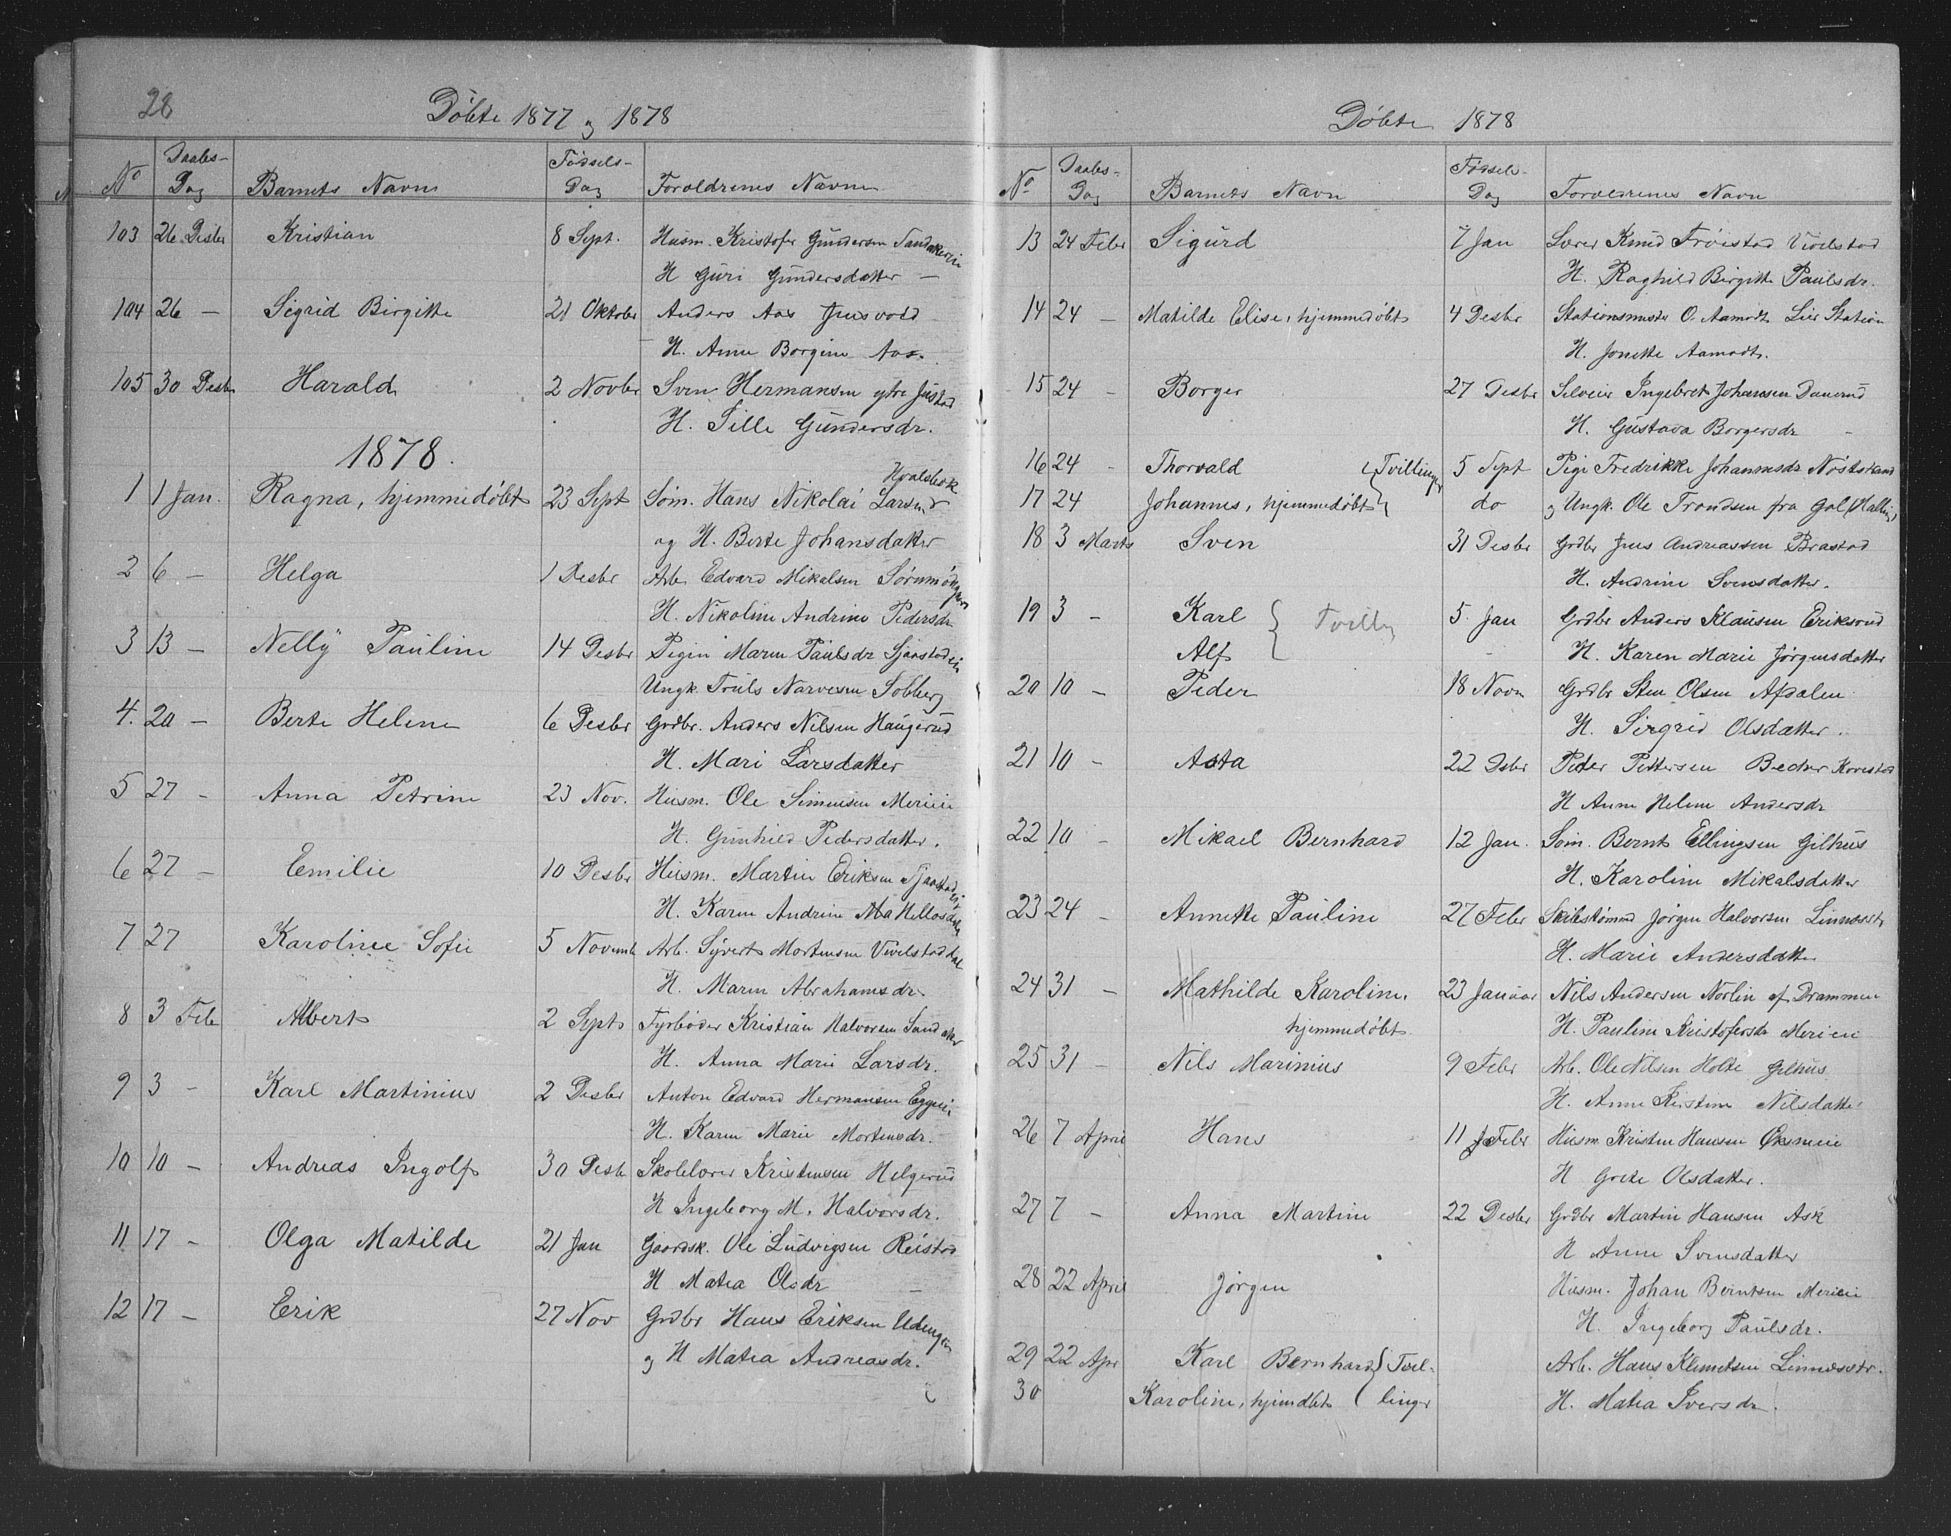 28
Döbte 1877 og 1878
No
Daabs-
Dag
Barnets Navn
Fødsels-
Dag
Foroldrenes Navne
103 26 Desbr Kristian 8 Sept. Husm. Kristofer Gundersen Sandakereie
H Guri Gundersdatter —
104 26 — Sigrid Birgitte 21 Oktober Anders Aas
H. Anne Borgine Aas.
105 30 Desbr Harald 2 Novbr Sven Hermansen ytre Justad
H. Sille Gundersdr.
1878.
1 1 Jan. Ragna, hjemmedøbt 23 Sept Søm. Hans Nikolai Larsen Hvalsbæk
og H. Berte Johansdatter
2 6 — Helga 1 Desbr Arb. Edvard Mikalsen
H. Nikoline Andrine Pedersdr
3 13 — Nelly Pauline 14 Desbr Pigen Maren Paulsdr Sjaastadeie
Ungk. Truls Narvesen Solberg
4. 20 — Berte Helene 6 Desbr Grdbr. Anders Nilsen Haugerud
H. Mari Larsdatter
5 27 — Anna Petrine 23 Nov. Husm. Ole Simensen Merieie
H. Gunhild Pedersdatter.
6 27 — Emilie 10 Desbr Husm. Martin Eriksen Sjaastadeie
H. Karen Andrine
7 27 Karoline Sofie 5 Novemb Arb. Syvert Mortensen
H. Maren Abrahamsdr.
8 3 Feb Albert 2 Sept Fyrbøder Kristian Halvorsen Sandaker
H. Anna Marie Larsdr.
9 3 — Karl Martinius 2 Desbr Anton Edvard Hermansen
H. Karen Marie Mortensdr.
10 10 — Andreas Ingolf 30 Desb Skolelærer Kristensen Helgerud
H Ingeborg M. Halvorsdr.
11 17 — Olga Matilde 21 Jan Gaardsk. Ole Ludvigsen Reistad
H Matea Olsdr —
12 17 — Erik 27 Nov Grdbr Hans Eriksen Udengen
og H Matea Andreasdr.
Döbte 1878
No
Daabs-
Dag
Barnets Navn
Fødsels-
Dag
Forældrenes Navn
13 24 Febr Sigurd 7 Jan Lærer Knud Frøistad Vivelstad
H. Raghild Birgitte Paulsdr.
14 24 — Matilde Elise, hjemmedøbt 4 Desbr Stationsmester O. Aamodt Lier Station
H. Jonette Aamodt.
15 24 — Borger 27 Desbr Selveier Ingebret Johansen Danerud
H. Gustava Borgersdr —
16 24 — Thorvald } Tvillinger 5 Sept Pige Fredrikke Johannesdr Nøstestrand
17 24 Johannes, hjemmedøbt } do og Ungk. Ole Trondsen fra Gol (Halling)
18 3 Marts Sven 31 Desbr Grdbr Jens Andreassen Brastad
H. Andrine Svensdatter.
19 3 — Karl { Tvilling 5 Jan Grdbr Anders Klausen Eriksrud
Alf - H. Karen Marie Jørgensdatter
20 10 — Peder 18 Novn Grdbr Sten Olsen Afdalen
H. Sirgrid Olsdatter.
21 10 — Asta 22 Dsbr Peder Pettersen Becker Kovestad
H Anne Helene Andersdr
22 10 — Mikael Bernhard 12 Jan. Søm. Bernt Ellingsen Gilhus
H. Karoline Mikalsdatter
23 24 — Annette Pauline 27 Febr Skibstømmd Jørgen Halvorsen Linnæsstr
H. Marie Andersdatter
24 31 — Mathilde Karoline, 23 Januar Nils Andersen Norlin af Drammen
hjemmedøbt. H. Pauline Kristofersdr Merieie
25 31 — Nils Marinius 9 Febr Arb. Ole Nilsen Holte Gilhus.
H. Anne Kirstine Nilsdatter
26 7 April Hans 11 Febr Husm Kristen Hansen Øxeneie
H Grete Olsdatter.
27 7 — Anna Martine 22 Desbr Grdbr Martin Hansen Ask
H Anne Svensdatter
28 22 April Jørgen Husm. Johan Berntsen Merieie
H. Ingeborg Paulsdr.
29 22 Apr Karl Bernhard } Tvil- Arb. Hans Klemetsen Linnæsstr.
30 Karoline, hjemdbt { linger H. Matea Iversdr.